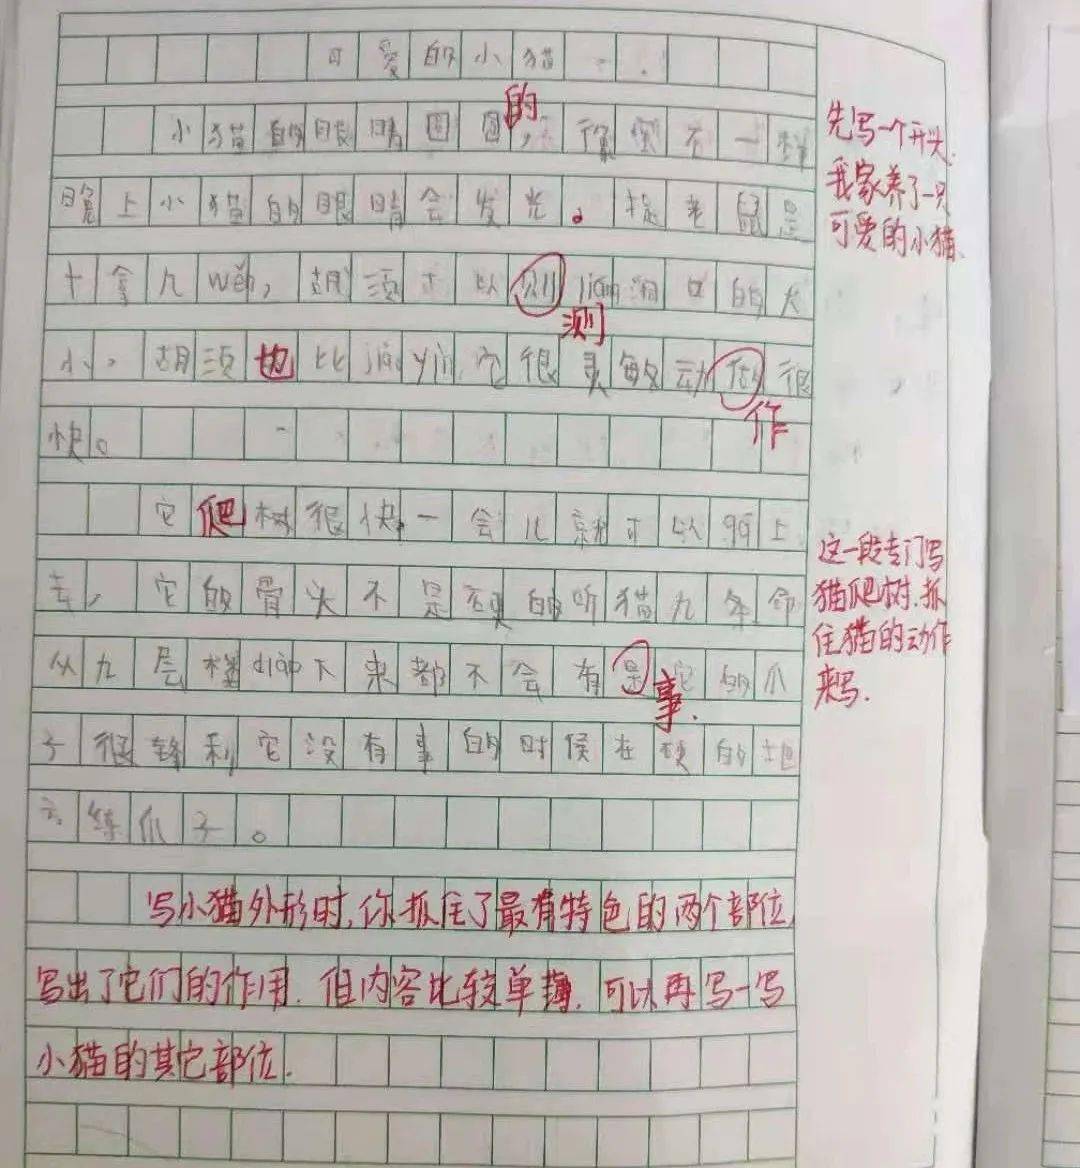 可爱的小猫
小猫的眼睛圆圆的,像灯一样
晚上小猫的眼睛会发光。捉老鼠是
十拿九wěn,胡须可以则liáng洞口的大
测
小,胡须也比jiào 它很灵敏动做很
作
快。
它爬树很快,一会儿就可以爬上
去,它的骨头不是硬的听猫九条命
从九层楼diào下来都不会有是它的爪
事.
子很锋利它没有事的时候在硬的地
方练爪子。
写小猫外形时,你抓住了最有特色的两个部位,
写出了它们的作用.但内容比较单薄.可以再写一写
小猫的其它部位.
先写一个开头.
我家养了一只
可爱的小猫.
这一段专门写
猫爬树.抓
住猫的动作
来写.